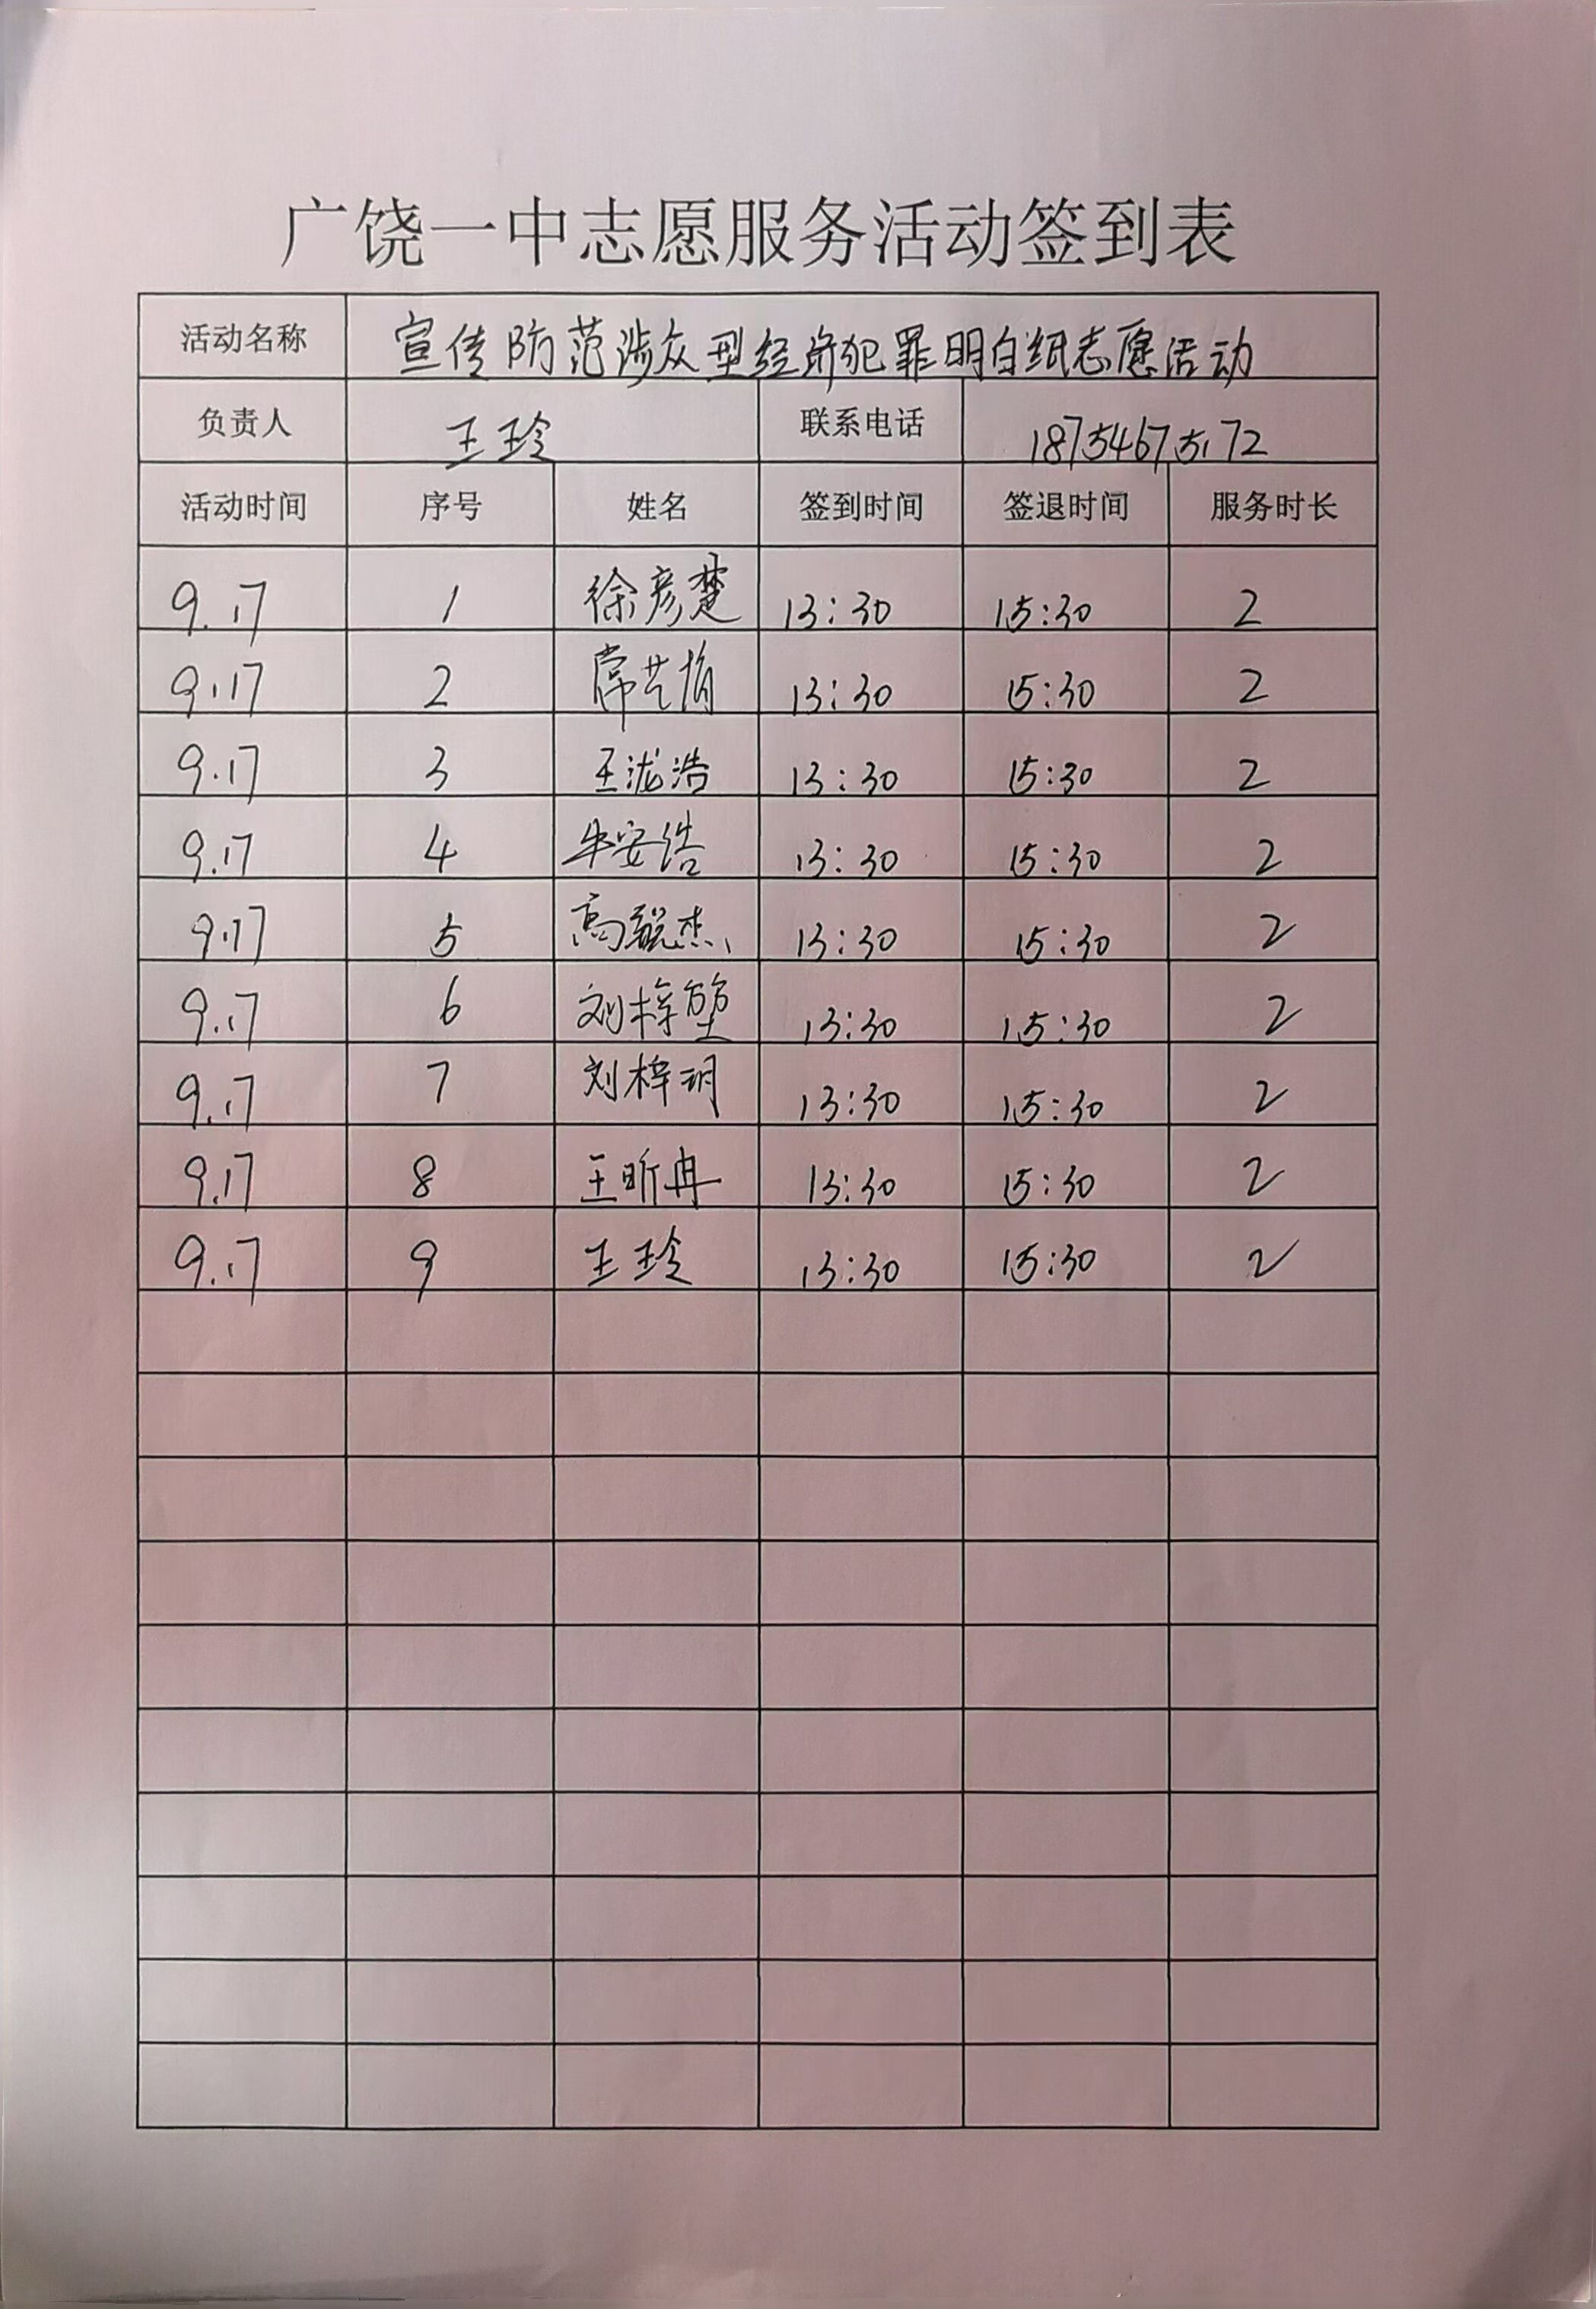 广饶一中志愿服务活动签到表
活动名称 宣传防范涉众型经济犯罪明白纸志愿活动
负责人 王玲 联系电话 18754675172
活动时间 序号 姓名 签到时间 签退时间 服务时长
9.17 1 徐彦楚 13:30 15:30 2
9.17 2 13:30 15:30 2
9.17 3 王泷浩 13:30 15:30 2
9.17 4 牛安浩 13:30 15:30 2
9.17 5 高毓杰 13:30 15:30 2
9.17 6 刘梓堃 13:30 15:30 2
9.17 7 刘梓玥 13:30 15:30 2
9.17 8 王昕冉 13:30 15:30 2
9.17 9 王玲 13:30 15:30 2